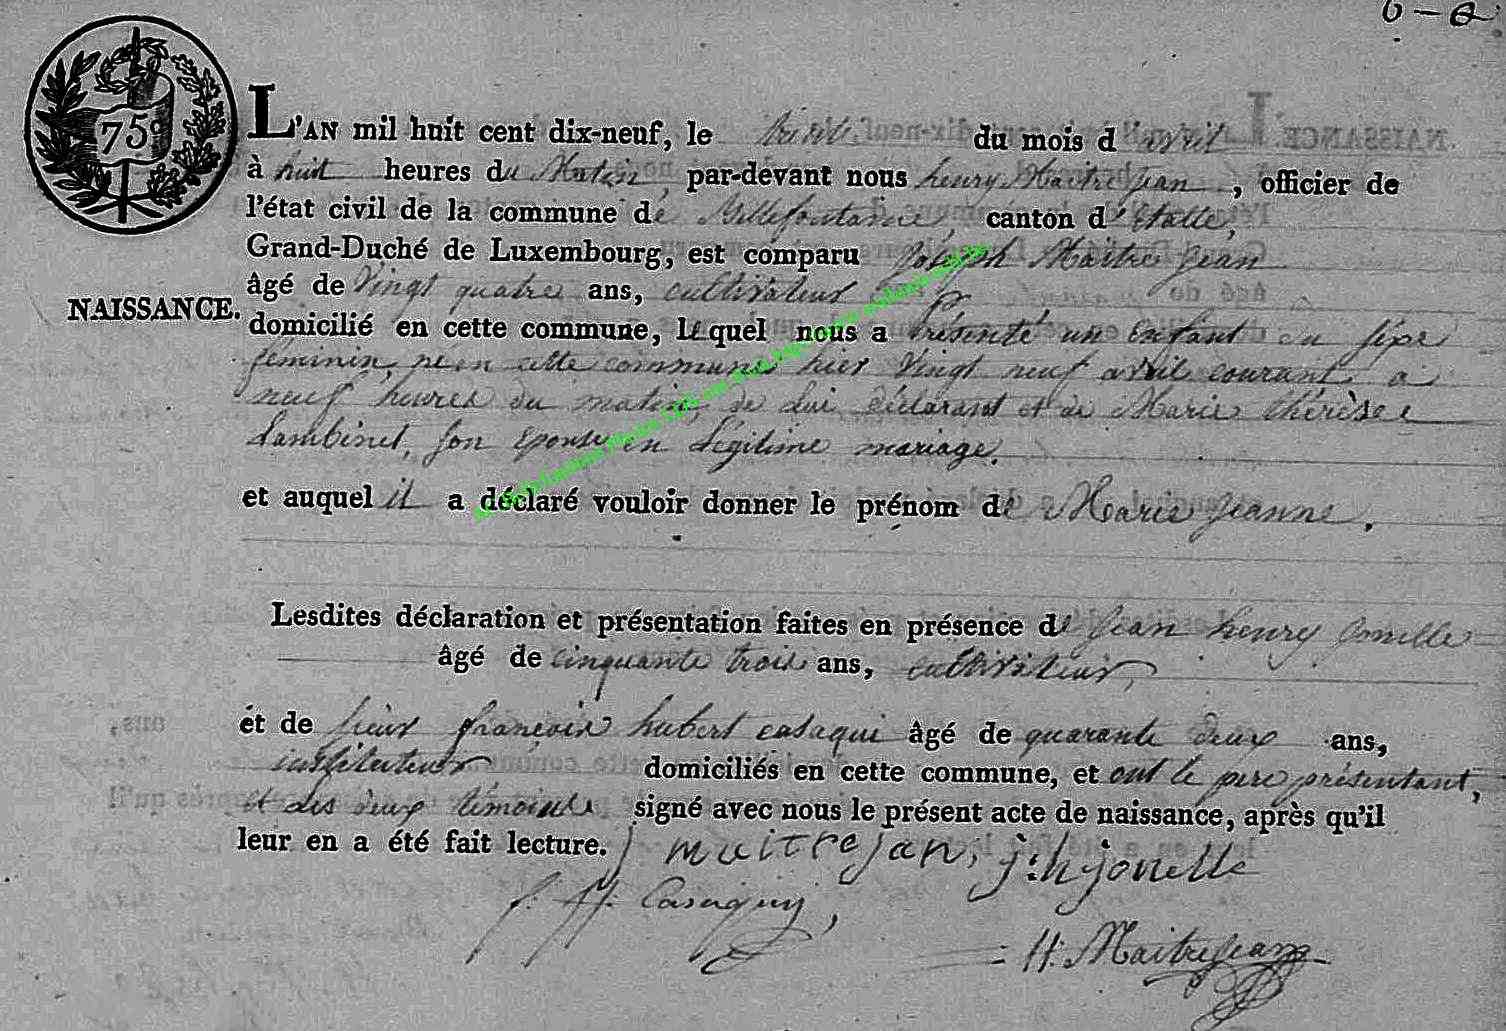 75c
L'AN mil huit cent dix-neuf, le trente du mois d avril
à huit heures du Matin, par-devant nous henry Maitrejean, officier de
l'état civil de la commune de Bellefontaine, canton d'Etalle,
Grand-Duché de Luxembourg, est comparu Joseph Maitrejean
âgé de Vingt quatre ans, cultivateur
NAISSANCE.
domicilié en cette commune, lequel nous a présenté un Enfant du sexe
feminin, né en cette commune hier Vingt neuf avril courant, a
neuf heures du matin, de lui déclarant et de Marie thérèse
Lambinet, son epouse en Légitime mariage.
et auquel il a déclaré vouloir donner le prénom de Marie jeanne.
Lesdites déclaration et présentation faites en présence de jean henry jonelle
âgé de cinquante trois ans, cultivateur,
et de sieur françois hubert casaqui âgé de quarante deux ans,
instituteur domiciliés en cette commune, et ont le pere présentant,
et les deux témoins signé avec nous le présent acte de naissance, après qu'il
leur en a été fait lecture. j maitrejan, j:h jonelle
f. H. Casaquy,
H. Maitrejean